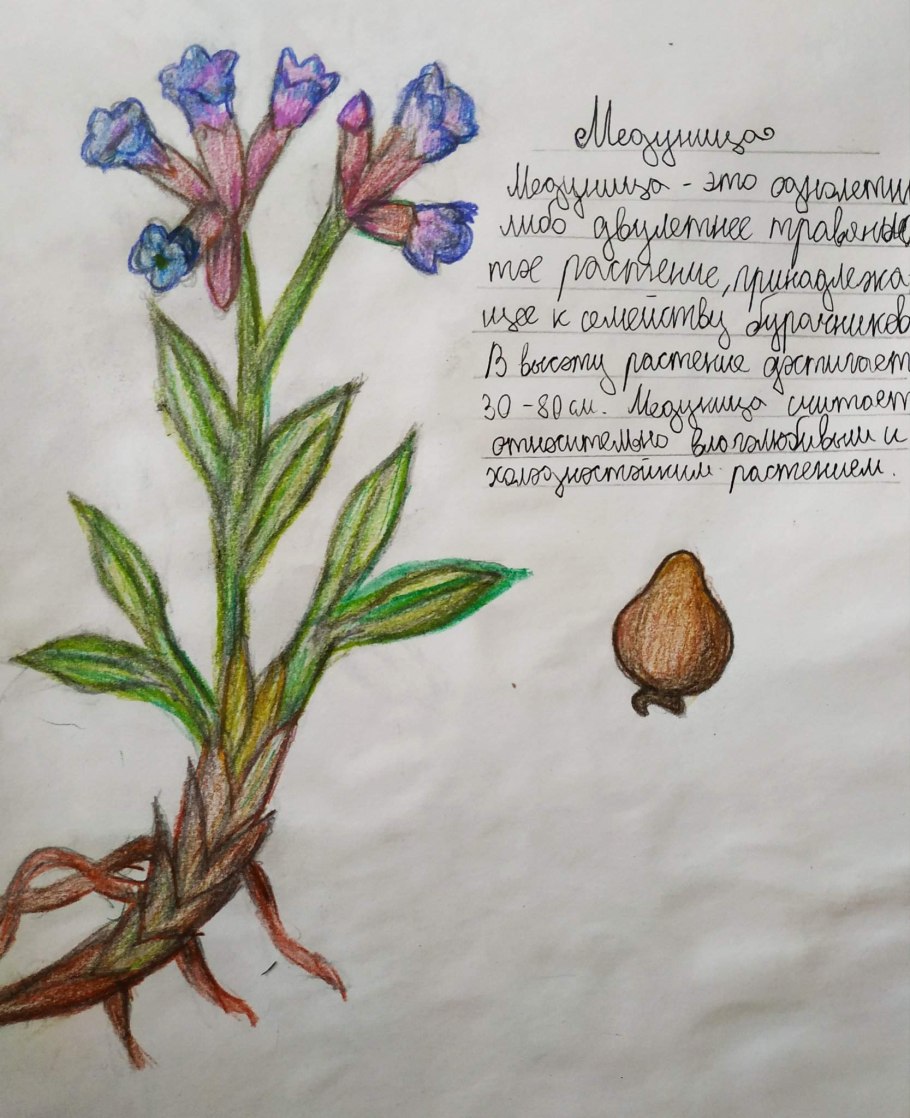 Медуница
Медуница - это однолетн
либо двулетнее травянис
тое растение, принадлежа-
щее к семейству бурачников
В высоту растение достигает
30-80 см. Медуница считает
относительно влаголюбивым и
холодностойким растением.